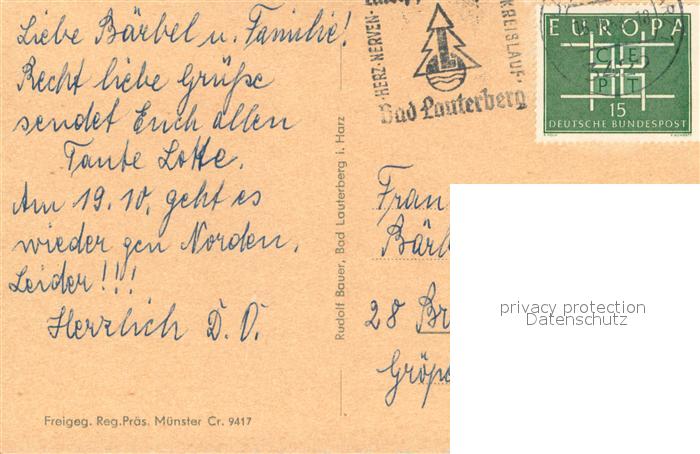 Liebe Bärbel u. Familie!
Recht liebe Grüße
sendet Euch allen
Tante Lotte.
Am 19.10. geht es
wieder gen Norden.
Leider!!!
Herzlich D. O.
Freigeg. Reg.Präs. Münster Cr. 9417
Rudolf Bauer, Bad Lauterberg i. Harz
HERZ-NERVEN-
KREISLAUF-
Bad Lauterberg
EUROPA
CEPT
15
DEUTSCHE BUNDESPOST
28
privacy protection
Datenschutz